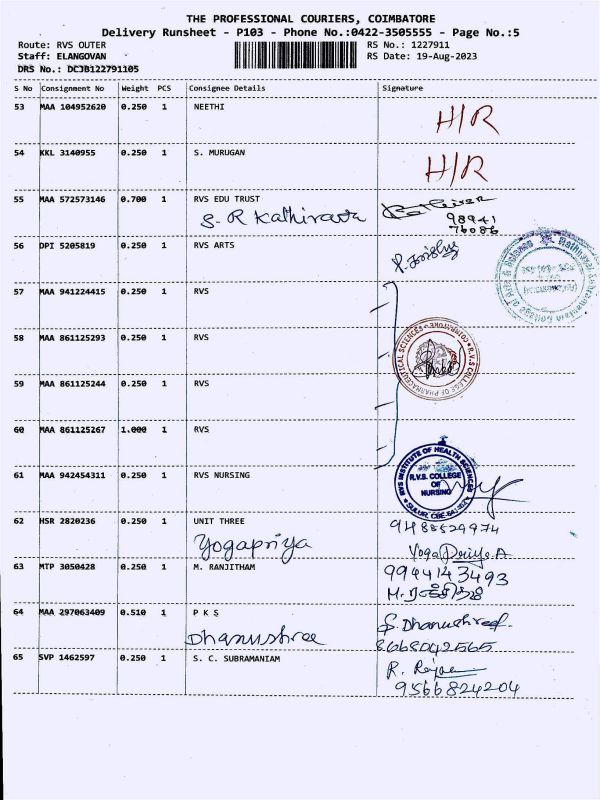 THE PROFESSIONAL COURIERS, COIMBATORE
Delivery Runsheet - P103 - Phone No.:0422-3505555 - Page No.:5
Route: RVS OUTER
RS No.: 1227911
Staff: ELANGOVAN
RS Date: 19-Aug-2023
DRS No.: DCJB122791105
S No Consignment No Weight PCS Consignee Details Signature
53 MAA 104952620 0.250 1 NEETHI
H/R
54 KKL 3140955 0.250 1 S. MURUGAN
H/R
55 MAA 572573146 0.700 1 RVS EDU TRUST
S. R Kathiravan
98941
76086
56 DPI 5205819 0.250 1 RVS ARTS
57 MAA 941224415 0.250 1 RVS
58 MAA 861125293 0.250 1 RVS
R.V.S COLLEGE OF PHARMACEUTICAL SCIENCES COIMBATORE
59 MAA 861125244 0.250 1 RVS
60 MAA 861125267 1.000 1 RVS
61 MAA 942454311 0.250 1 RVS NURSING
RVS INSTITUTE OF HEALTH SCIENCES
R.V.S. COLLEGE
OF
NURSING
62 HSR 2820236 0.250 1 UNIT THREE
9488529974
Yogapriya
Yoga Priya.A
63 MTP 3050428 0.250 1 M. RANJITHAM
9944143493
64 MAA 297063409 0.510 1 P K S
S. Dhanushree.
Dhanushree
8668042565
65 SVP 1462597 0.250 1 S. C. SUBRAMANIAM
9566824204